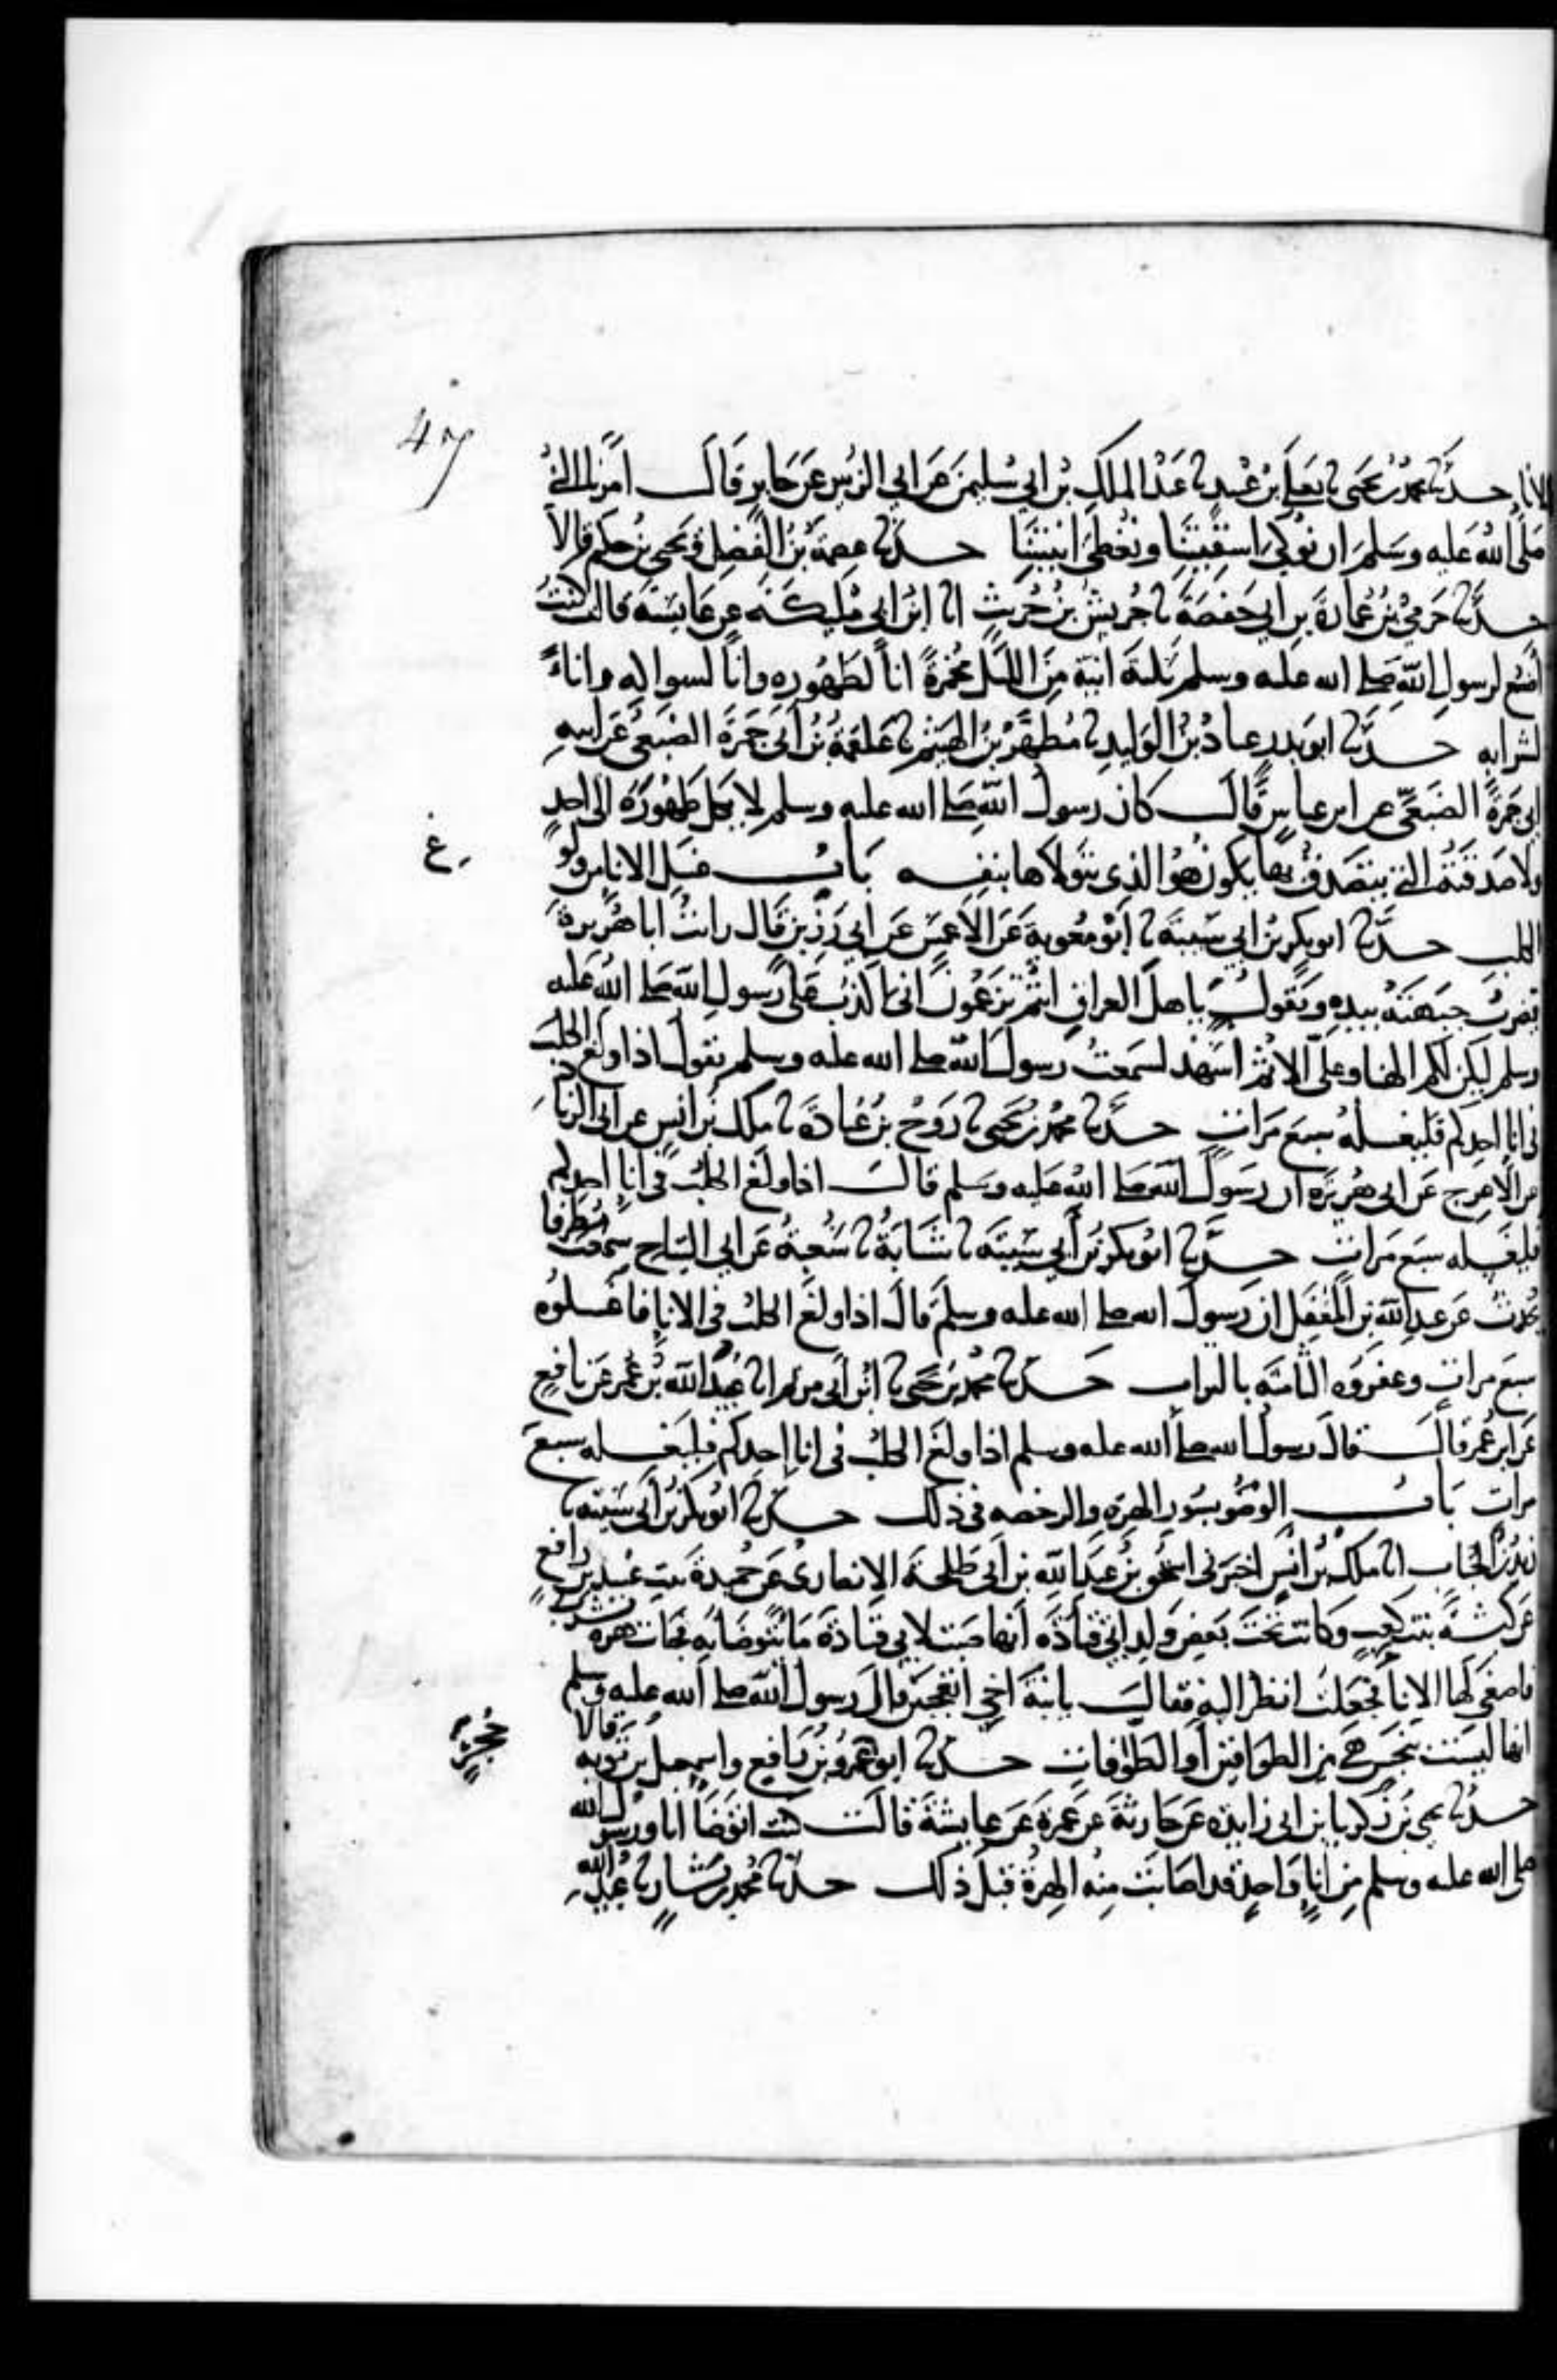 47
الانا حدثنا محمد بن يحيى ثنا يعلى بن عبيد ثنا عبد الملك بن ابي سليمن عن ابي الزبير عن جابر قال امرنا النبي
صلى الله عليه وسلم ان نوكي اسقيتنا ونغطي انيتنا حدثنا عصمة بن الفضل ويحيى بن حكيم قالا
حدثنا حرمي بن عمارة بن ابي حفصة ثنا حريش بن خريت انا ابن ابي مليكة عن عايشة قالت كنت
اضع لرسول الله صلى الله عليه وسلم ثلثة انية من الليل مخمرة اناً لطهوره واناً لسواكه واناءً
لشرابه حدثنا ابو بدر عباد بن الوليد ثنا مطهر بن الهيثم ثنا علقمة بن ابي جمرة الضبعي عن ابيه
ابي جمرة الضبعي عن ابن عباس قال كان رسول الله صلى الله عليه وسلم لا يكل طهوره الى احد
ولا صدقته التي يتصدق بها يكون هو الذي يتولاها بنفسه باب غسل الانا من ولوغ
الكلب حدثنا ابو بكر بن ابي شيبة ثنا ابو معوية عن الاعمش عن ابي رزين قال رايت ابا هريرة
يضرب جبهته بيده ويقول يا اهل العراق انتم تزعمون اني اكذب على رسول الله صلى الله عليه
وسلم ليكن لكم المهنا وعلي الاثم اشهد لسمعت رسول الله صلى الله عليه وسلم يقول اذا ولغ الكلب
في انا احدكم فليغسله سبع مرات حدثنا محمد بن يحيى ثنا روح بن عبادة ثنا ملك بن انس عن ابي الزناد
عن الاعرج عن ابي هريرة ان رسول الله صلى الله عليه وسلم قال اذا ولغ الكلب في انا احدكم
فليغسله سبع مرات حدثنا ابو بكر بن ابي شيبة ثنا شبابة ثنا شعبة عن ابي التياح سمعت مطرفا
يحدث عن عبد الله بن المغفل ان رسول الله صلى الله عليه وسلم قال اذا ولغ الكلب في الانا فاغسلوه
سبع مرات وعفروه الثامنة بالتراب حدثنا محمد بن يحيى ثنا ابن ابي مريم انا عبيد الله بن عمر عن نافع
عن ابن عمر قال قال رسول الله صلى الله عليه وسلم اذا ولغ الكلب في انا احدكم فليغسله سبع
مرات باب الوضو بسور الهرة والرخصة في ذلك حدثنا ابو بكر بن ابي شيبة ثنا
زيد بن الحباب انا ملك بن انس اخبرني اسحق بن عبد الله بن ابي طلحة الانصاري عن حميدة بنت عبيد بن رافع
عن كبشة بنت كعب وكانت تحت بعض ولد ابي قتادة انها صبت لابي قتادة ما يتوضا به فجات هرة تشرب
فاصغى لها الانا فجعلت انظر اليه فقال يا بنة اخي اتعجبين قال رسول الله صلى الله عليه وسلم
انها ليست بنجس هي من الطوافين او الطوافات حدثنا ابو عمرو بن رافع واسمعيل بن توبة قالا
حدثنا يحيى بن زكريا بن ابي زايدة عن حارثة عن عمرة عن عايشة قالت كنت اتوضا انا ورسول الله
صلى الله عليه وسلم من انا واحد قد اصابت منه الهرة قبل ذلك حدثنا محمد بن بشار ثنا عبيد الله